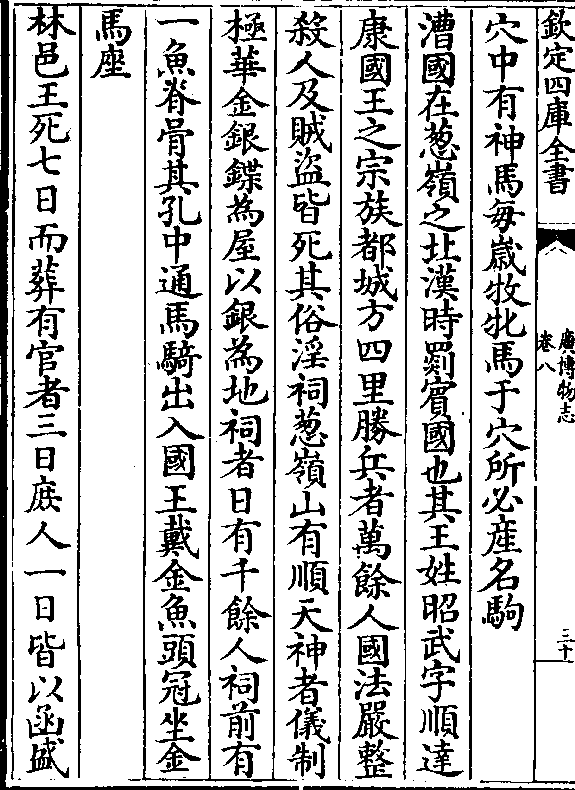 欽定四庫全書
廣博物志
卷八
三十
穴中有神馬每嵗牧牝馬于穴所必産名駒
漕國在葱嶺之北漢時罽賓國也其王姓昭武字順達
康國王之宗族都城方四里勝兵者萬餘人國法嚴整
殺人及賊盜皆死其俗淫祠葱嶺山有順天神者儀制
極華金銀鍱為屋以銀為地祠者日有千餘人祠前有
一魚脊骨其孔中通馬騎出入國王戴金魚頭冠坐金
馬座
林邑王死七日而葬有官者三日庶人一日皆以函盛